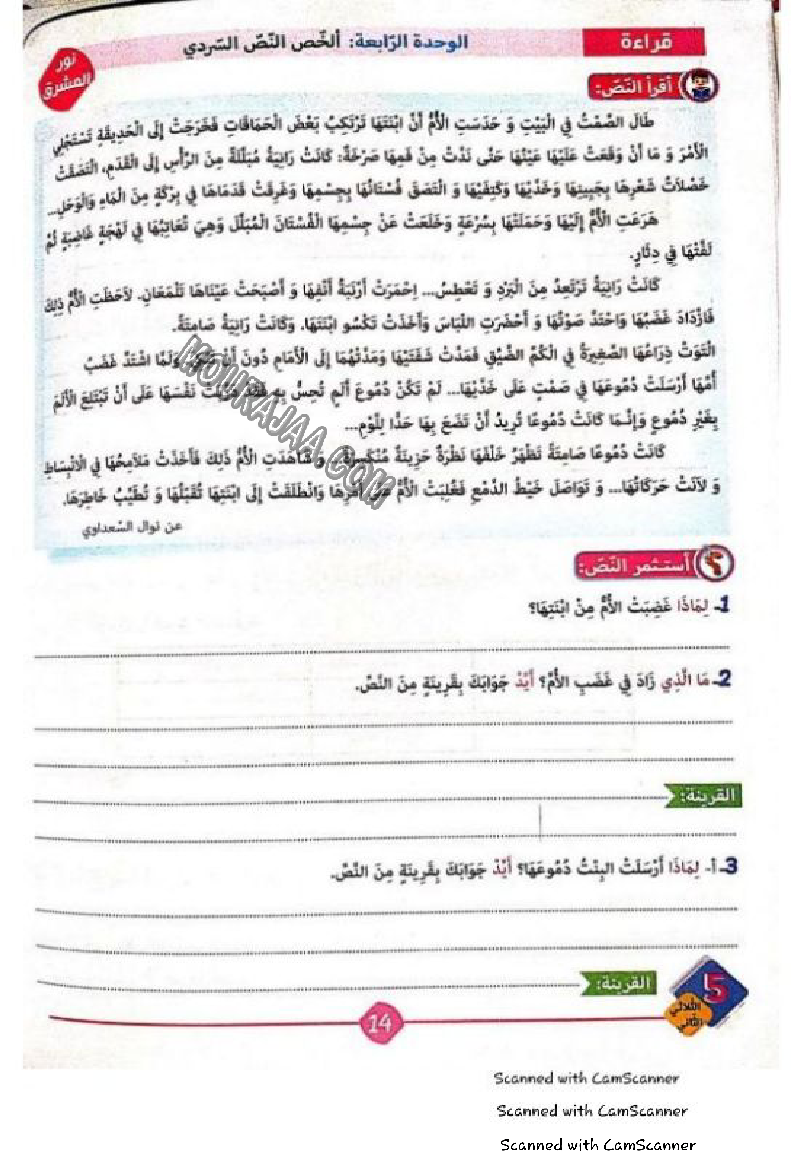 قراءة
الوحدة الرّابعة: ألخّص النّصّ السّردي
نور المشرق
أقرأ النّصّ:
طَالَ الصَّمْتُ فِي الْبَيْتِ وَ حَدَسَتِ الْأُمُّ أَنَّ ابْنَتَهَا تَرْتَكِبُ بَعْضَ الْحَمَاقَاتِ فَخَرَجَتْ إِلَى الْحَدِيقَةِ تَسْتَجْلِي
الْأَمْرَ وَ مَا أَنْ وَقَعَتْ عَلَيْهَا عَيْنُهَا حَتَّى نَدَّتْ مِنْ فَمِهَا صَرْخَةٌ: كَانَتْ رَانِيَةُ مُبَلَّلَةً مِنَ الرَّأْسِ إِلَى الْقَدَمِ، الْتَصَقَتْ
خَصْلَاتُ شَعْرِهَا بِجَبِينِهَا وَخَدَّيْهَا وَكَتِفَيْهَا وَ الْتَصَقَ فُسْتَانُهَا بِجِسْمِهَا وَغَرِقَتْ قَدَمَاهَا فِي بِرْكَةٍ مِنَ الْمَاءِ وَالْوَحَلِ...
هَرَعَتِ الْأُمُّ إِلَيْهَا وَحَمَلَتْهَا بِسُرْعَةٍ وَخَلَعَتْ عَنْ جِسْمِهَا الْفُسْتَانَ الْمُبَلَّلَ وَهِيَ تُعَاتِبُهَا فِي لَهْجَةٍ غَاضِبَةٍ ثُمَّ
لَفَّتْهَا فِي دِثَارٍ.
كَانَتْ رَانِيَةُ تَرْتَعِدُ مِنَ الْبَرْدِ وَ تَعْطِسُ... اِحْمَرَّتْ أَرْنَبَةُ أَنْفِهَا وَ أَصْبَحَتْ عَيْنَاهَا تَلْمَعَانِ. لَاحَظَتِ الْأُمُّ ذَلِكَ
فَازْدَادَ غَضَبُهَا وَاحْتَدَّ صَوْتُهَا وَ أَحْضَرَتِ اللِّبَاسَ وَأَخَذَتْ تَكْسُو ابْنَتَهَا. وَكَانَتْ رَانِيَةُ صَامِتَةً.
الْتَوَتْ ذِرَاعُهَا الصَّغِيرَةُ فِي الْكُمِّ الضَّيِّقِ فَمَدَّتْ شَفَتَيْهَا وَمَدَّتْهُمَا إِلَى الْأَمَامِ دُونَ أَنْ وَلَمَّا اشْتَدَّ غَضَبُ
أُمِّهَا أَرْسَلَتْ دُمُوعَهَا فِي صَمْتٍ عَلَى خَدَّيْهَا... لَمْ تَكُنْ دُمُوعَ أَلَمٍ تُحِسُّ بِهِ نَفْسَهَا عَلَى أَنْ تَبْتَلِعَ الْأَلَمَ
بِغَيْرِ دُمُوعٍ وَإِنَّمَا كَانَتْ دُمُوعًا تُرِيدُ أَنْ تَضَعَ بِهَا حَدًّا لِلَّوْمِ...
كَانَتْ دُمُوعًا صَامِتَةً تَظْهَرُ خَلْفَهَا نَظْرَةٌ حَزِينَةٌ مُنْكَسِرَةٌ. وَ شَاهَدَتِ الْأُمُّ ذَلِكَ فَأَخَذَتْ مَلَامِحُهَا فِي الْانْبِسَاطِ
وَ لَانَتْ حَرَكَاتُهَا... وَ تَوَاصَلَ خَيْطُ الدَّمْعِ فَغُلِبَتْ الْأُمُّ عَلَى أَمْرِهَا وَانْطَلَقَتْ إِلَى ابْنَتِهَا تُقَبِّلُهَا وَ تُطَيِّبُ خَاطِرَهَا.
عن نوال السّعداوي
MOURAJAA.COM
٢ أستثمر النّصّ:
1- لِمَاذَا غَضِبَتْ الْأُمُّ مِنْ ابْنَتِهَا؟
2- مَا الَّذِي زَادَ فِي غَضَبِ الْأُمِّ؟ أَيِّدْ جَوَابَكَ بِقَرِينَةٍ مِنَ النَّصِّ.
القرينة:
3- أ- لِمَاذَا أَرْسَلَتْ الْبِنْتُ دُمُوعَهَا؟ أَيِّدْ جَوَابَكَ بِقَرِينَةٍ مِنَ النَّصِّ.
القرينة:
5
الثّلاثي الثّاني
14
Scanned with CamScanner
Scanned with CamScanner
Scanned with CamScanner